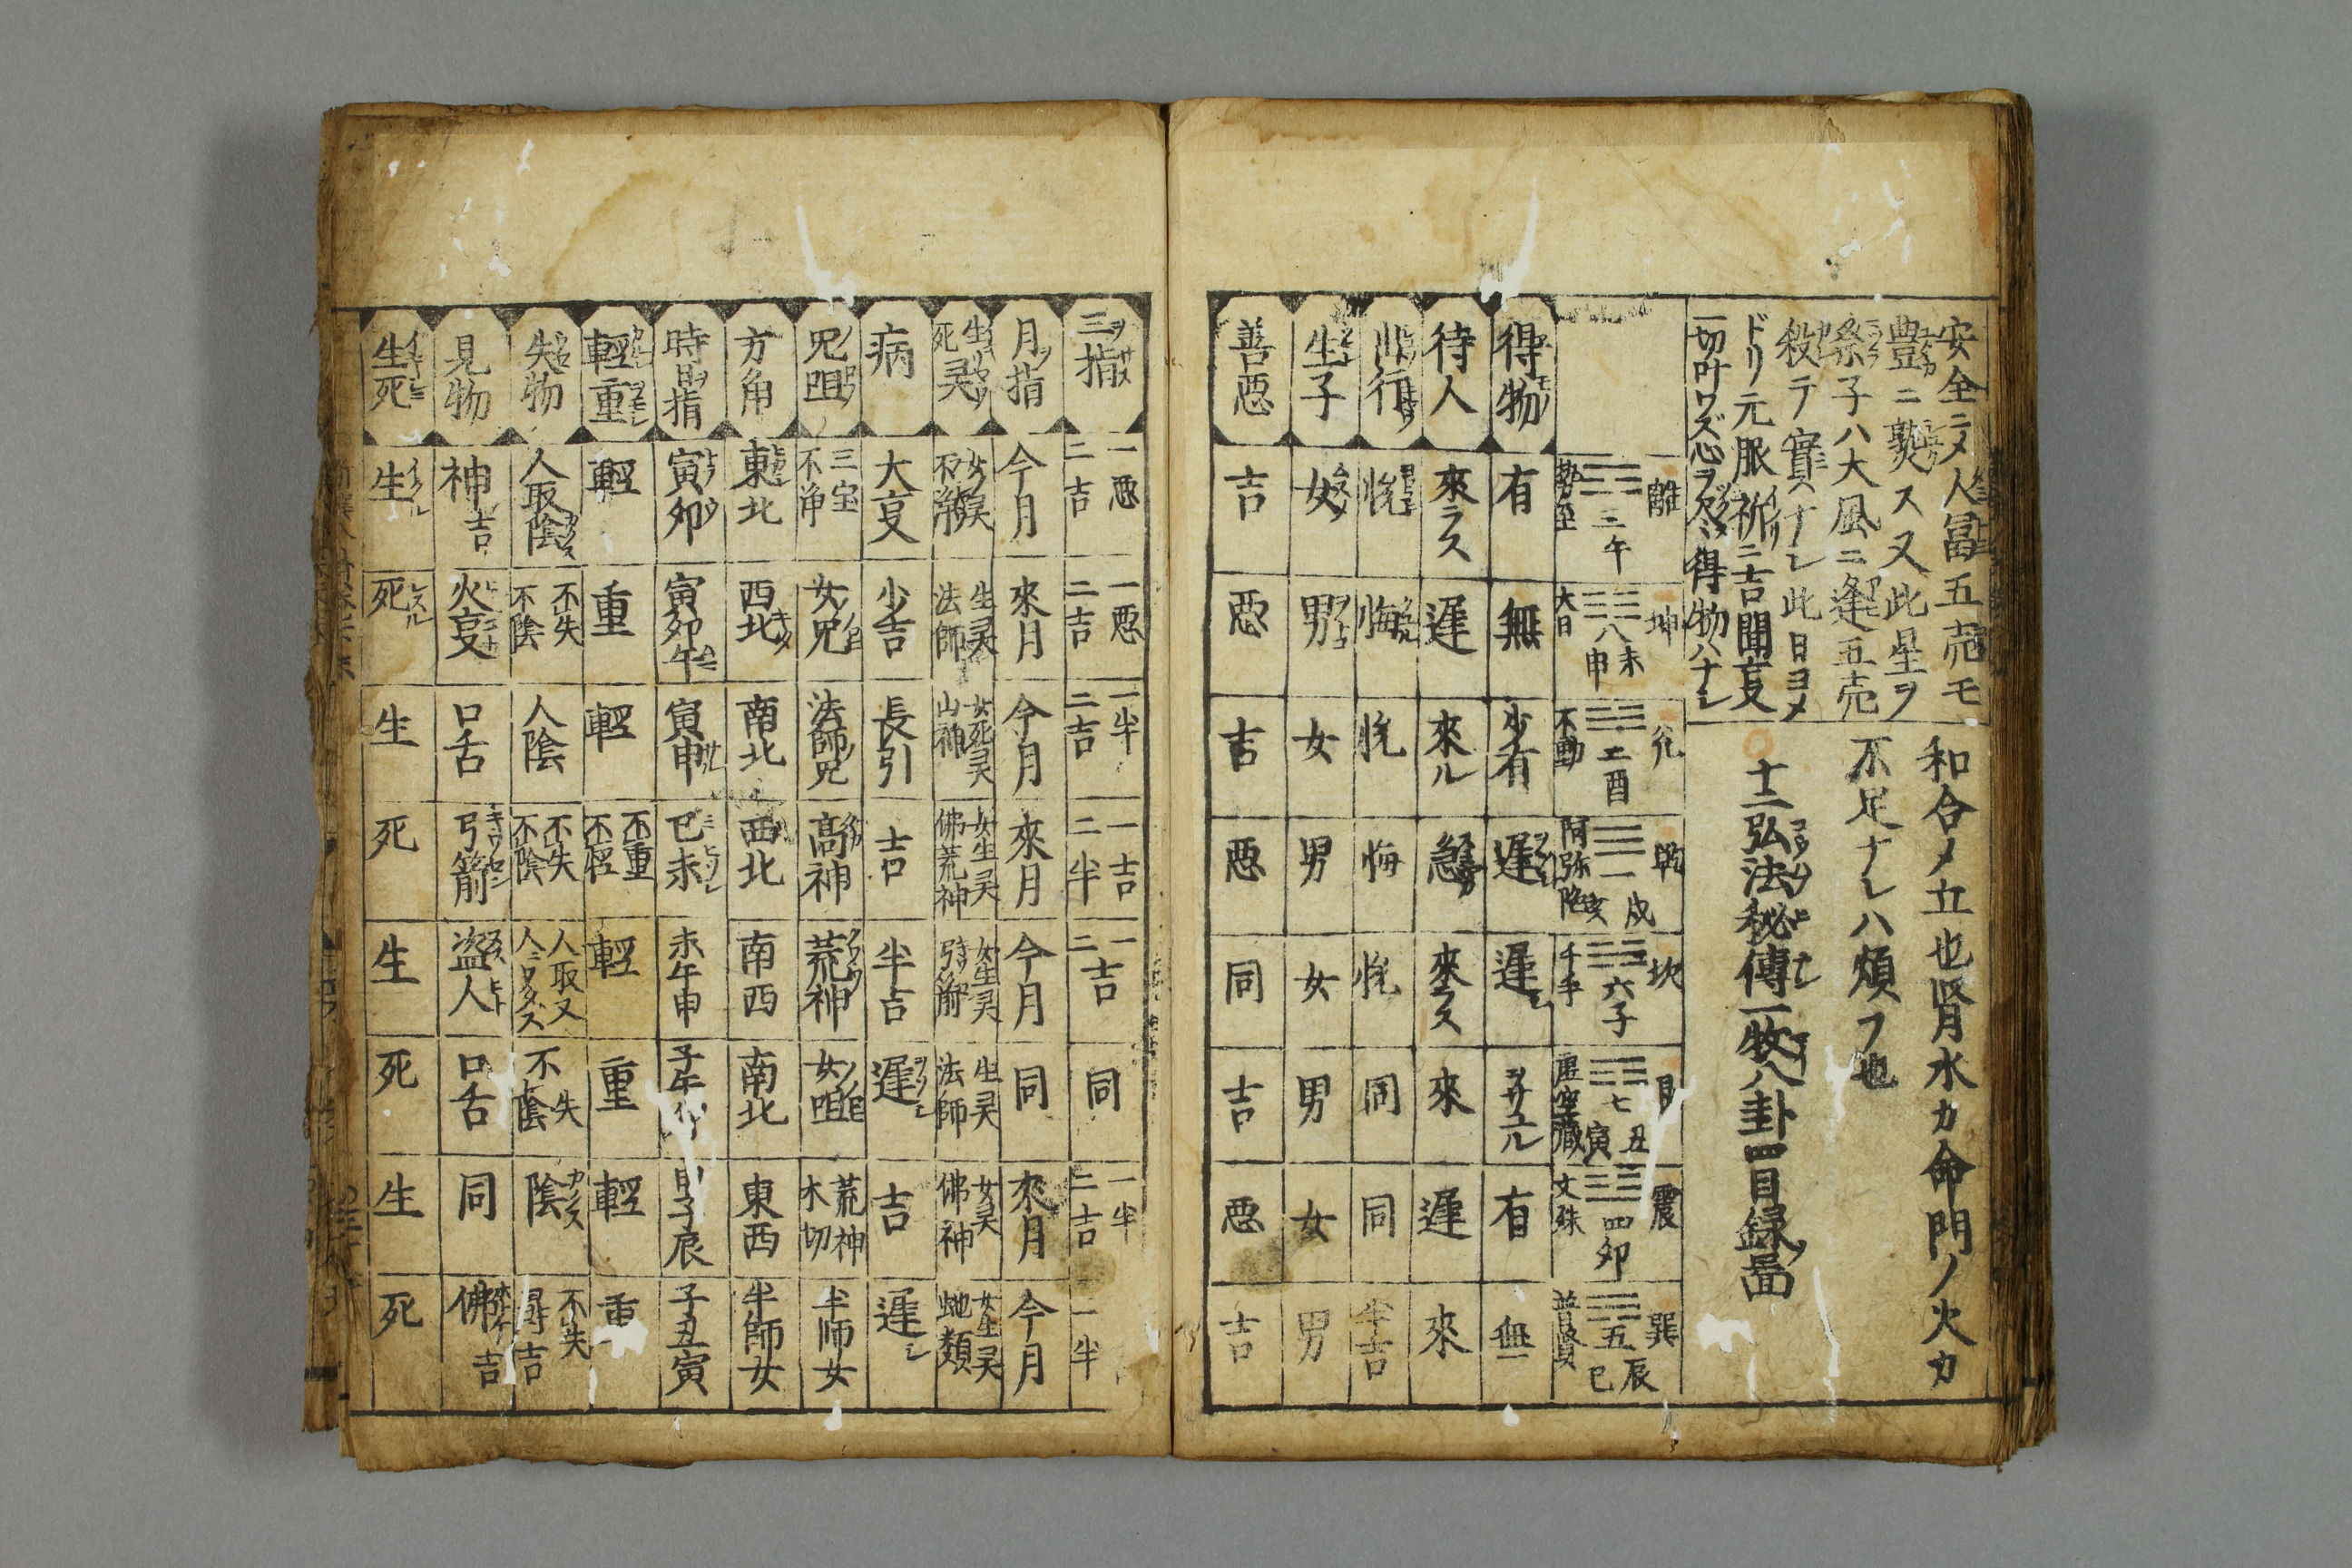 安全ニメ人冨五売モ
豊ニ熟ス又此星ヲ
祭子ハ大風ニ逢五売
殺テ實ナレ此日ヨメ
ドリ元服祈ニ吉聞亥
一切叶ワズ心ヲ尽得物ハナシ
和合メ立也腎水カ命門ノ火カ
不足ナレハ煩フ也
十二弘法秘傳一牧八卦四目録啚
離 三午 勢至
坤 八未申 大日
兌 二酉 不動
乾 一戌亥 阿弥陀
坎 六子 千手
艮 七丑寅 虚空藏
震 四卯 文殊
巽 五辰巳 普賢
得物 有 無 少有 遅 遅 ヲサユル 有 無
待人 來ラス 遅 來ル 急 來ラス 來 遅 來
行 悦 悔 悦 悔 悦 同 同 半吉
生子 女 男 女 男 女 男 女 男
善悪 吉 悪 吉 悪 同 吉 悪 吉
三指 一悪二吉 一悪二吉 一半二吉 一吉二半 一二吉 同 一半二吉 一二半
月指 今月 來月 今月 來月 今月 同 來月 今月
生死灵 女灵不浄 生灵法師 女死灵山神 女生灵佛荒神 女生灵弓箭 生灵法師 女灵佛神 女生灵虵類
病 大亥 少吉 長引 吉 半吉 遅 吉 遅シ
咒咀 三宝不浄 女咒 法師咒 髙神 荒神 女咀 荒神木切 半师女
方角 東北 西北 南北 西北 南西 南北 東西 半師女
時日指 寅卯 寅卯午 寅申 巳未 未午申 子午 子辰 子丑寅
輕重 輕 重 輕 不重不輕 輕 重 輕 重
失物 人取陰 不失不陰 人陰 不失不陰 人取又人ニワタス 不失不陰 陰 不失尋吉
見物 神吉 火亥 口舌 弓箭 盗人 口舌 同 佛吉
生死 生 死 生 死 生 死 生 死